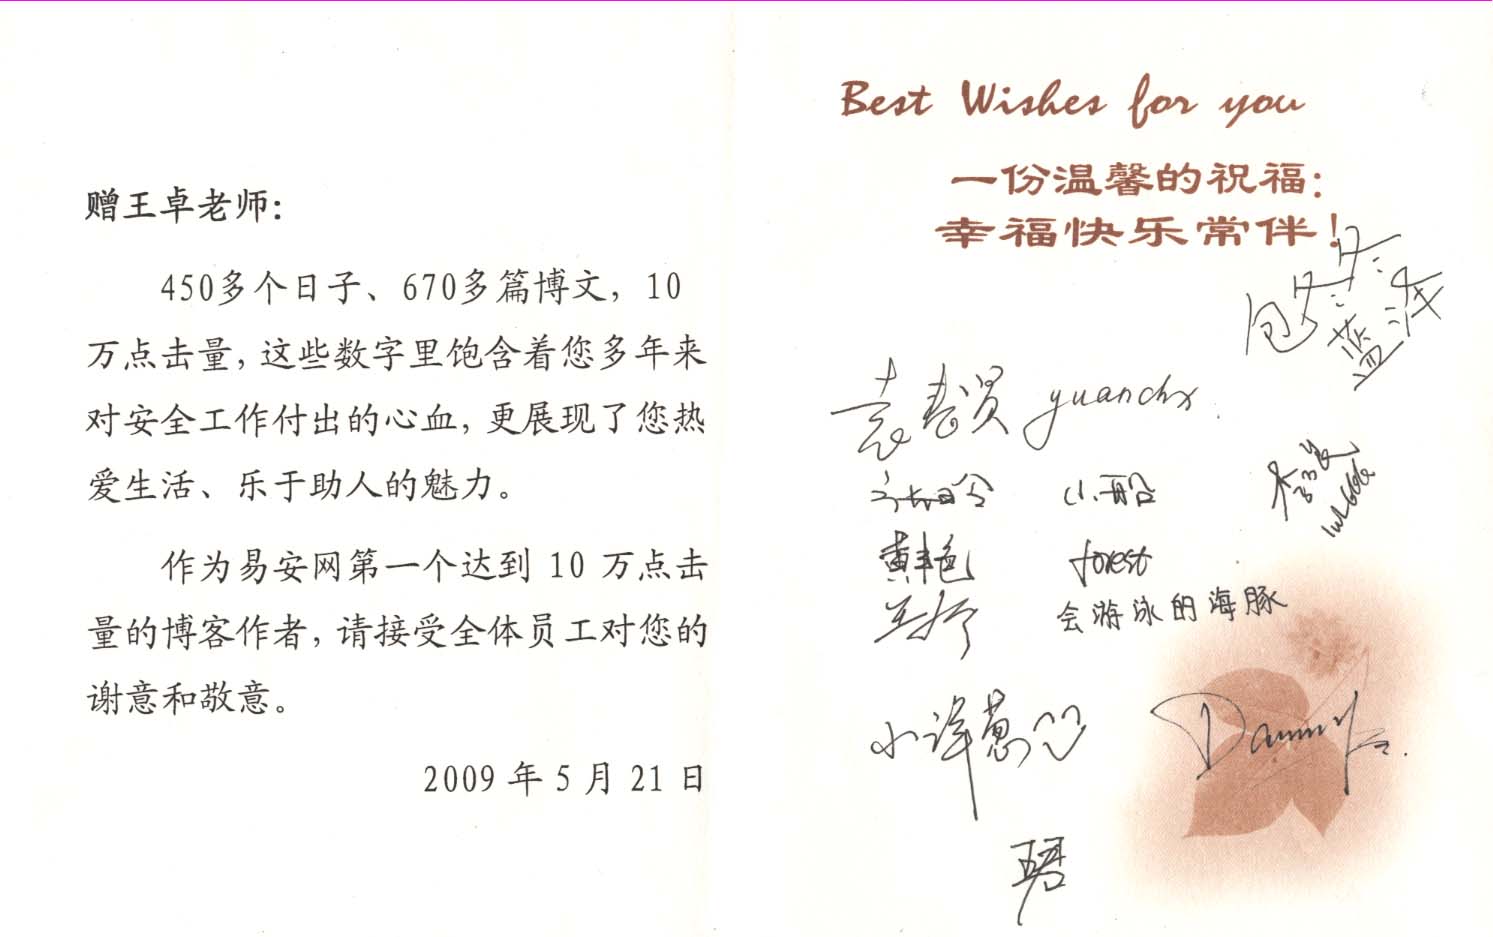 赠王卓老师:
450多个日子、670多篇博文，10
万点击量，这些数字里饱含着您多年来
对安全工作付出的心血，更展现了您热
爱生活、乐于助人的魅力。
作为易安网第一个达到 10 万点击
量的博客作者，请接受全体员工对您的
谢意和敬意。
2009 年 5 月 21 日
Best Wishes for you
一份温馨的祝福:
幸福快乐常伴!
yuanchx
小船
黄艳
forest
会游泳的海豚
小洋葱
Danny
珺